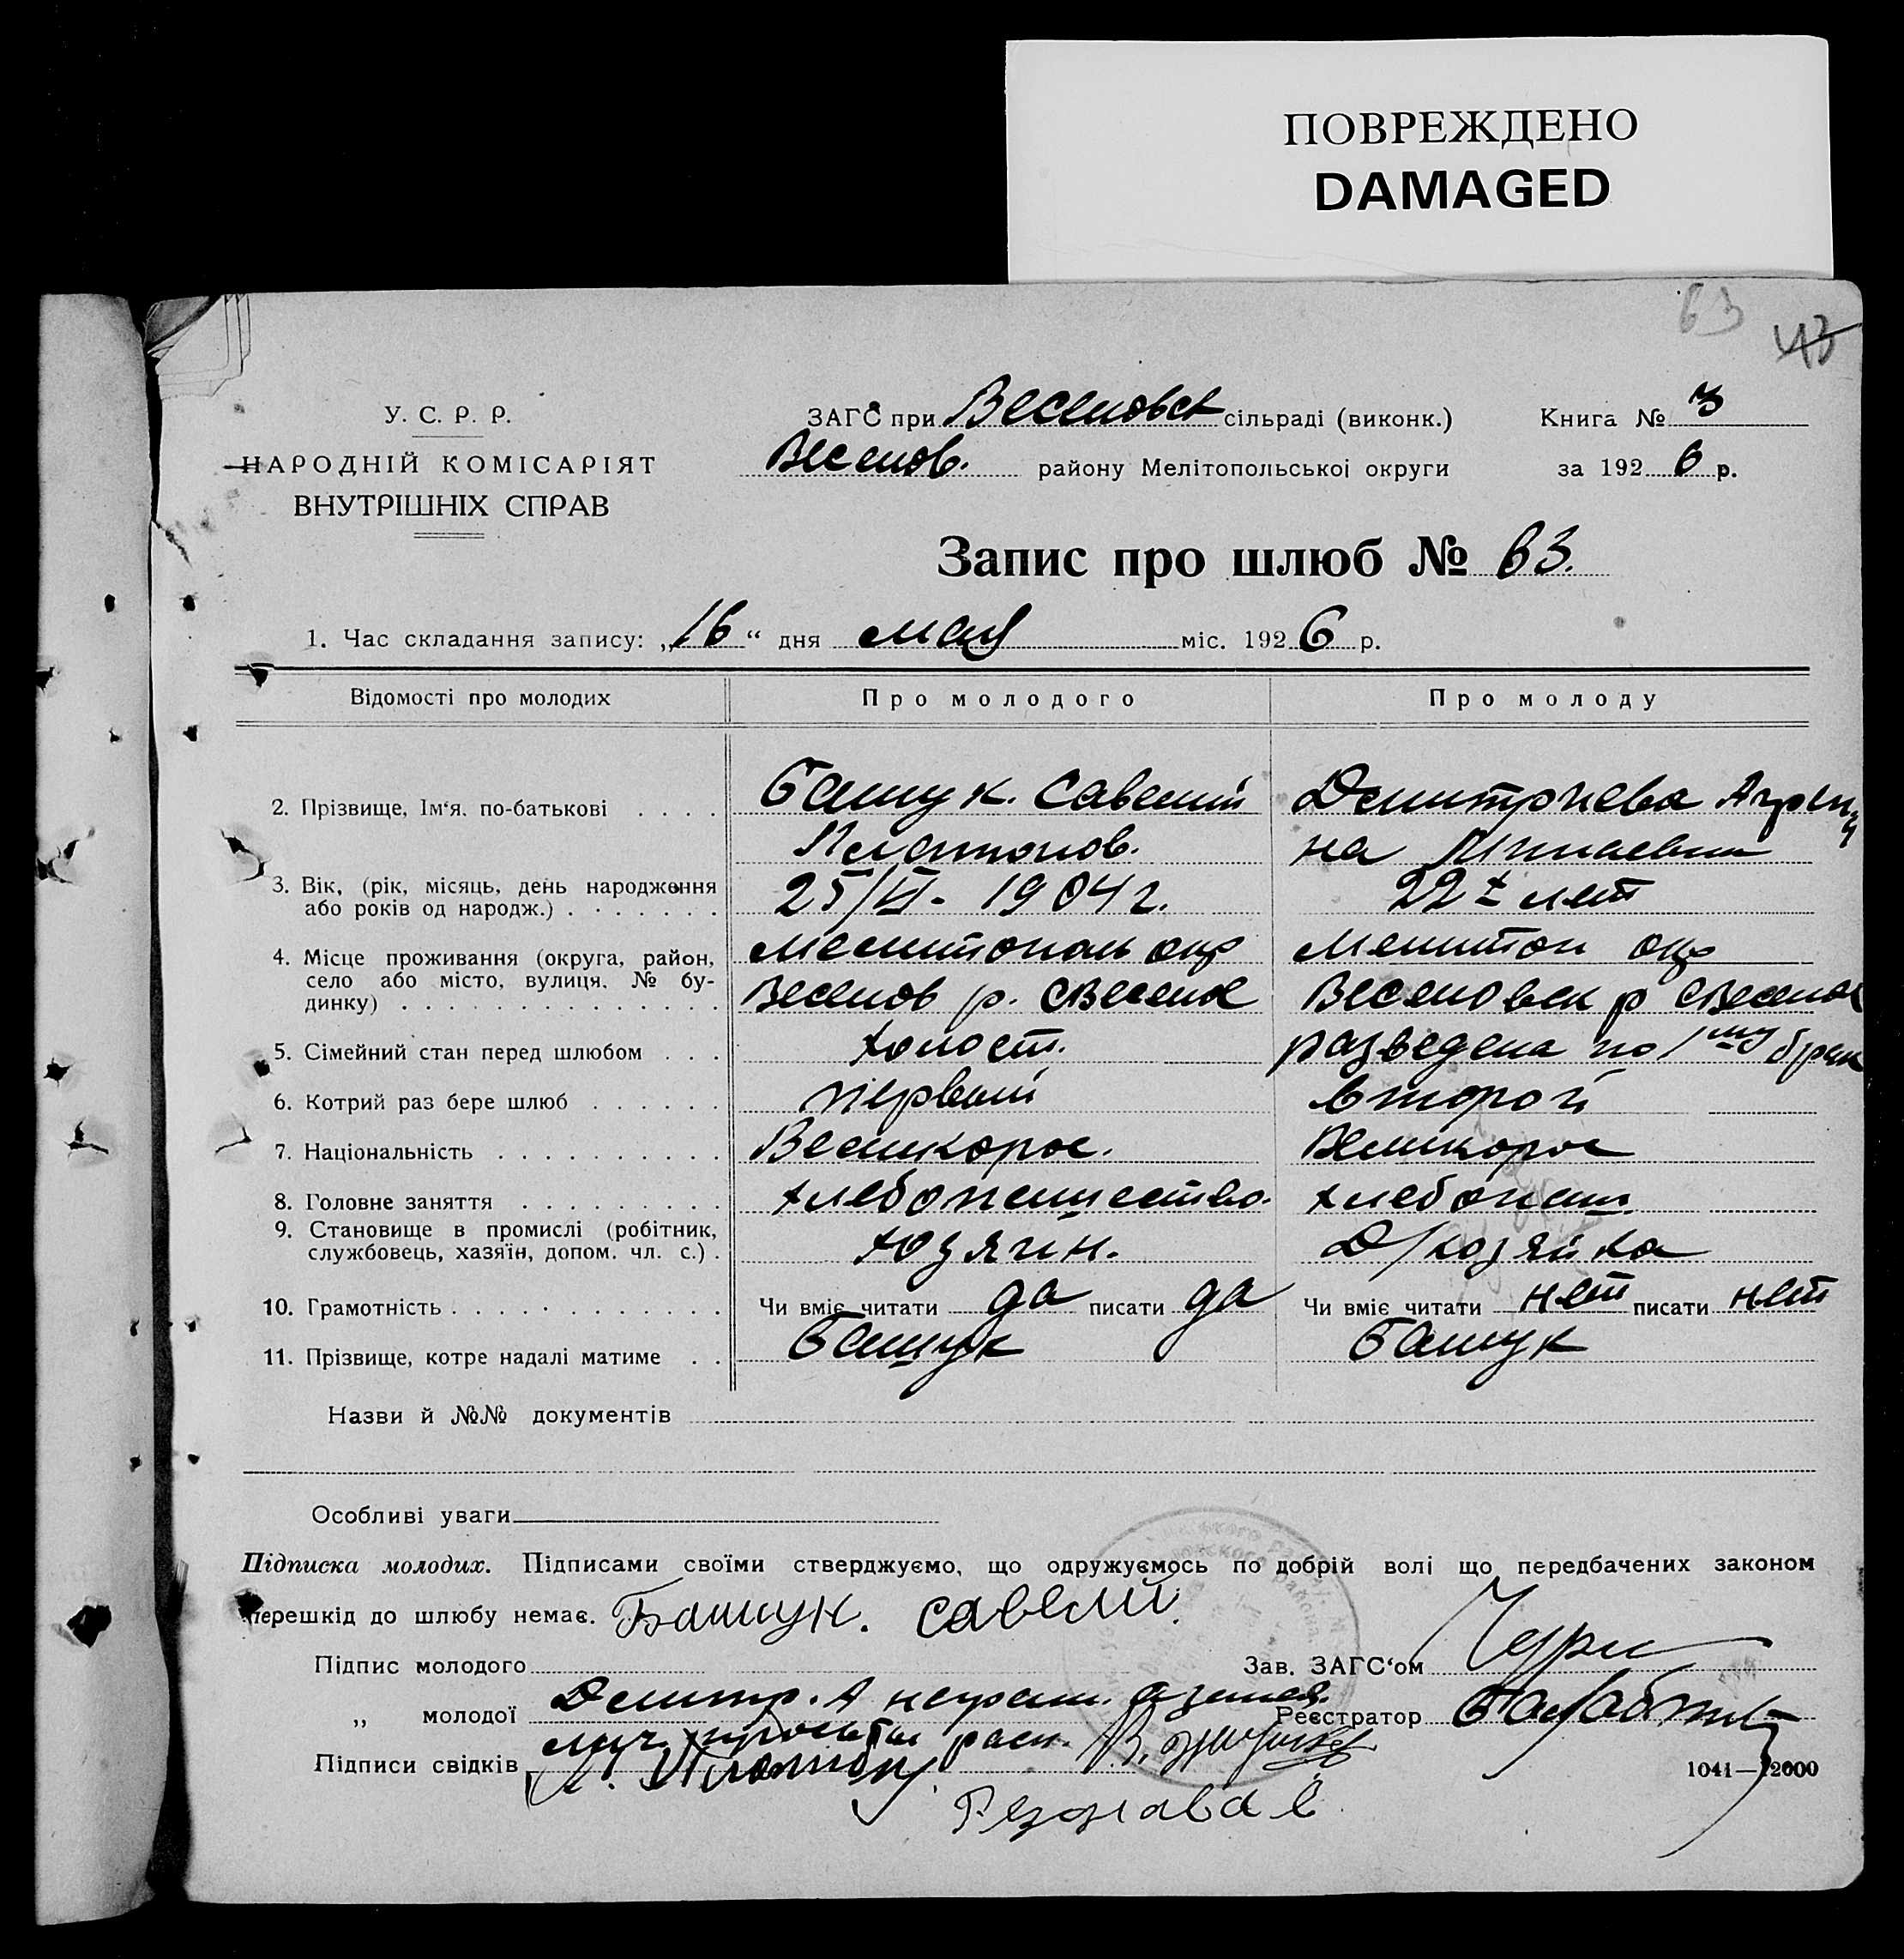 ПОВРЕЖДЕНО
DAMAGED
63
43
У. С. Р. Р.
НАРОДНІЙ КОМІСАРІЯТ
ВНУТРІШНІХ СПРАВ
ЗАГС при Веселовск сільраді (виконк.) Книга № 3
Веселов. району Мелітопольської округи за 1926 р.
Запис про шлюб № 63.
1. Час складання запису: „16“ дня мая міс. 1926 р.
Відомості про молодих Про молодого Про молоду
2. Прізвище, Ім‘я, по-батькові . . . . Башук. Савелий Дмитриева Агрепи
Платонов. на Минаевна
3. Вік, (рік, місяць, день народження
або років од народж.) . . . . . . . 25/VI - 1904 г. 22 лет
4. Місце проживання (округа, район,
село або місто, вулиця, № бу-
динку) . . . . . . . . . . . . . . Мелитополь окр Мелитоп окр
Веселов р. с Веселое Веселовск р с Веселое
5. Сімейний стан перед шлюбом . . . холост. разведена по 1му брак
6. Котрий раз бере шлюб . . . . . . первый второй
7. Національність . . . . . . . . . . Великорос. Великорос
8. Головне заняття . . . . . . . . . хлебопашество. хлебопаш.
9. Становище в промислі (робітник,
службовець, хазяїн, допом. чл. с.) . хозяин. Д/хозяйка
10. Грамотність . . . . . . . . . . . . Чи вміє читати да писати да Чи вміє читати нет писати нет
11. Прізвище, котре надалі матиме . . Башук Башук
Назви й №№ документів
Особливі уваги
Підписка молодих. Підписами своїми стверджуємо, що одружуємось по добрій волі що передбачених законом
перешкід до шлюбу немає. Башук. Савелий.
Підпис молодого Зав. ЗАГС‘ом
„ молодої Дмитр. А неграм. Реєстратор
Підписи свідків
1041—12000